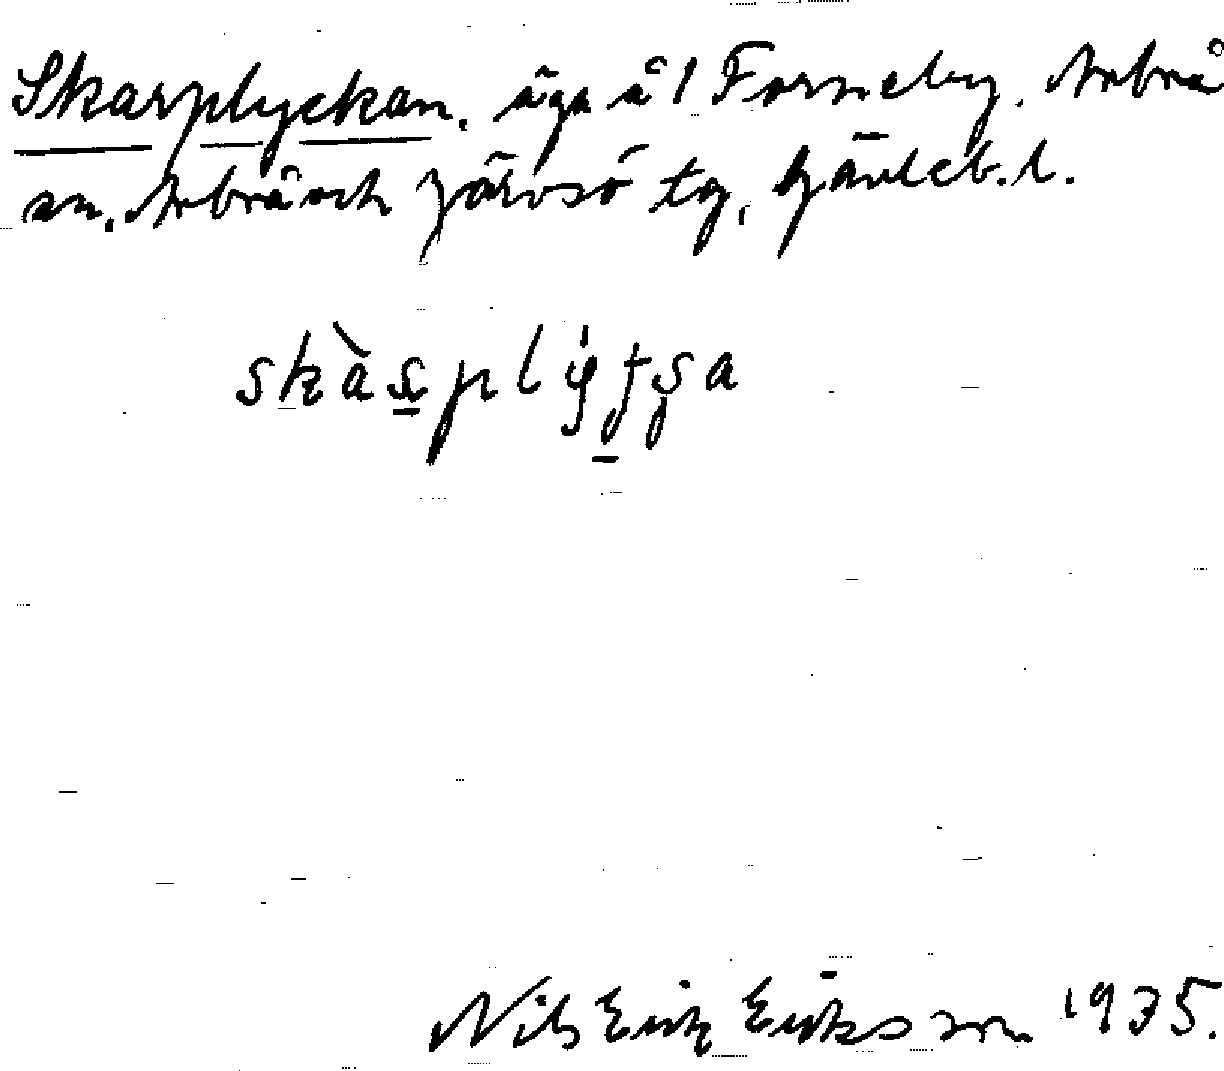 Skarplyckan, äga å 1 Forneby, Arbrå
sn. Arbrå och Järvsö tg, Gävleb. l.
skàs̠plýt̠ʂa
Nils Erik Eriksson 1935.